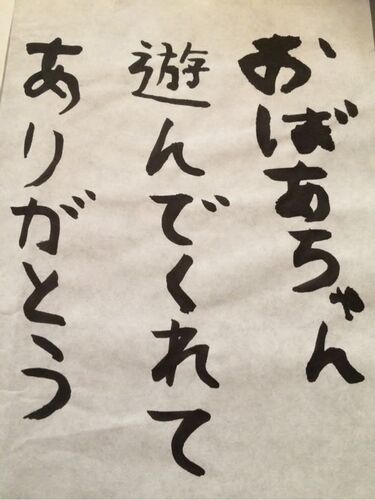 おばあちゃん
遊んでくれて
ありがとう